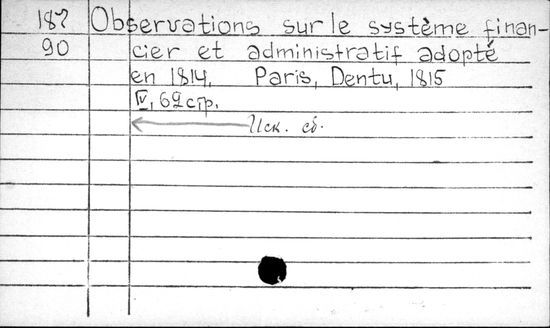 187 Observations sur le système finan-
90 cier et administratif adopté
en 1814. Paris, Dentu, 1815
IV, 62 стр.
Иск. сб.